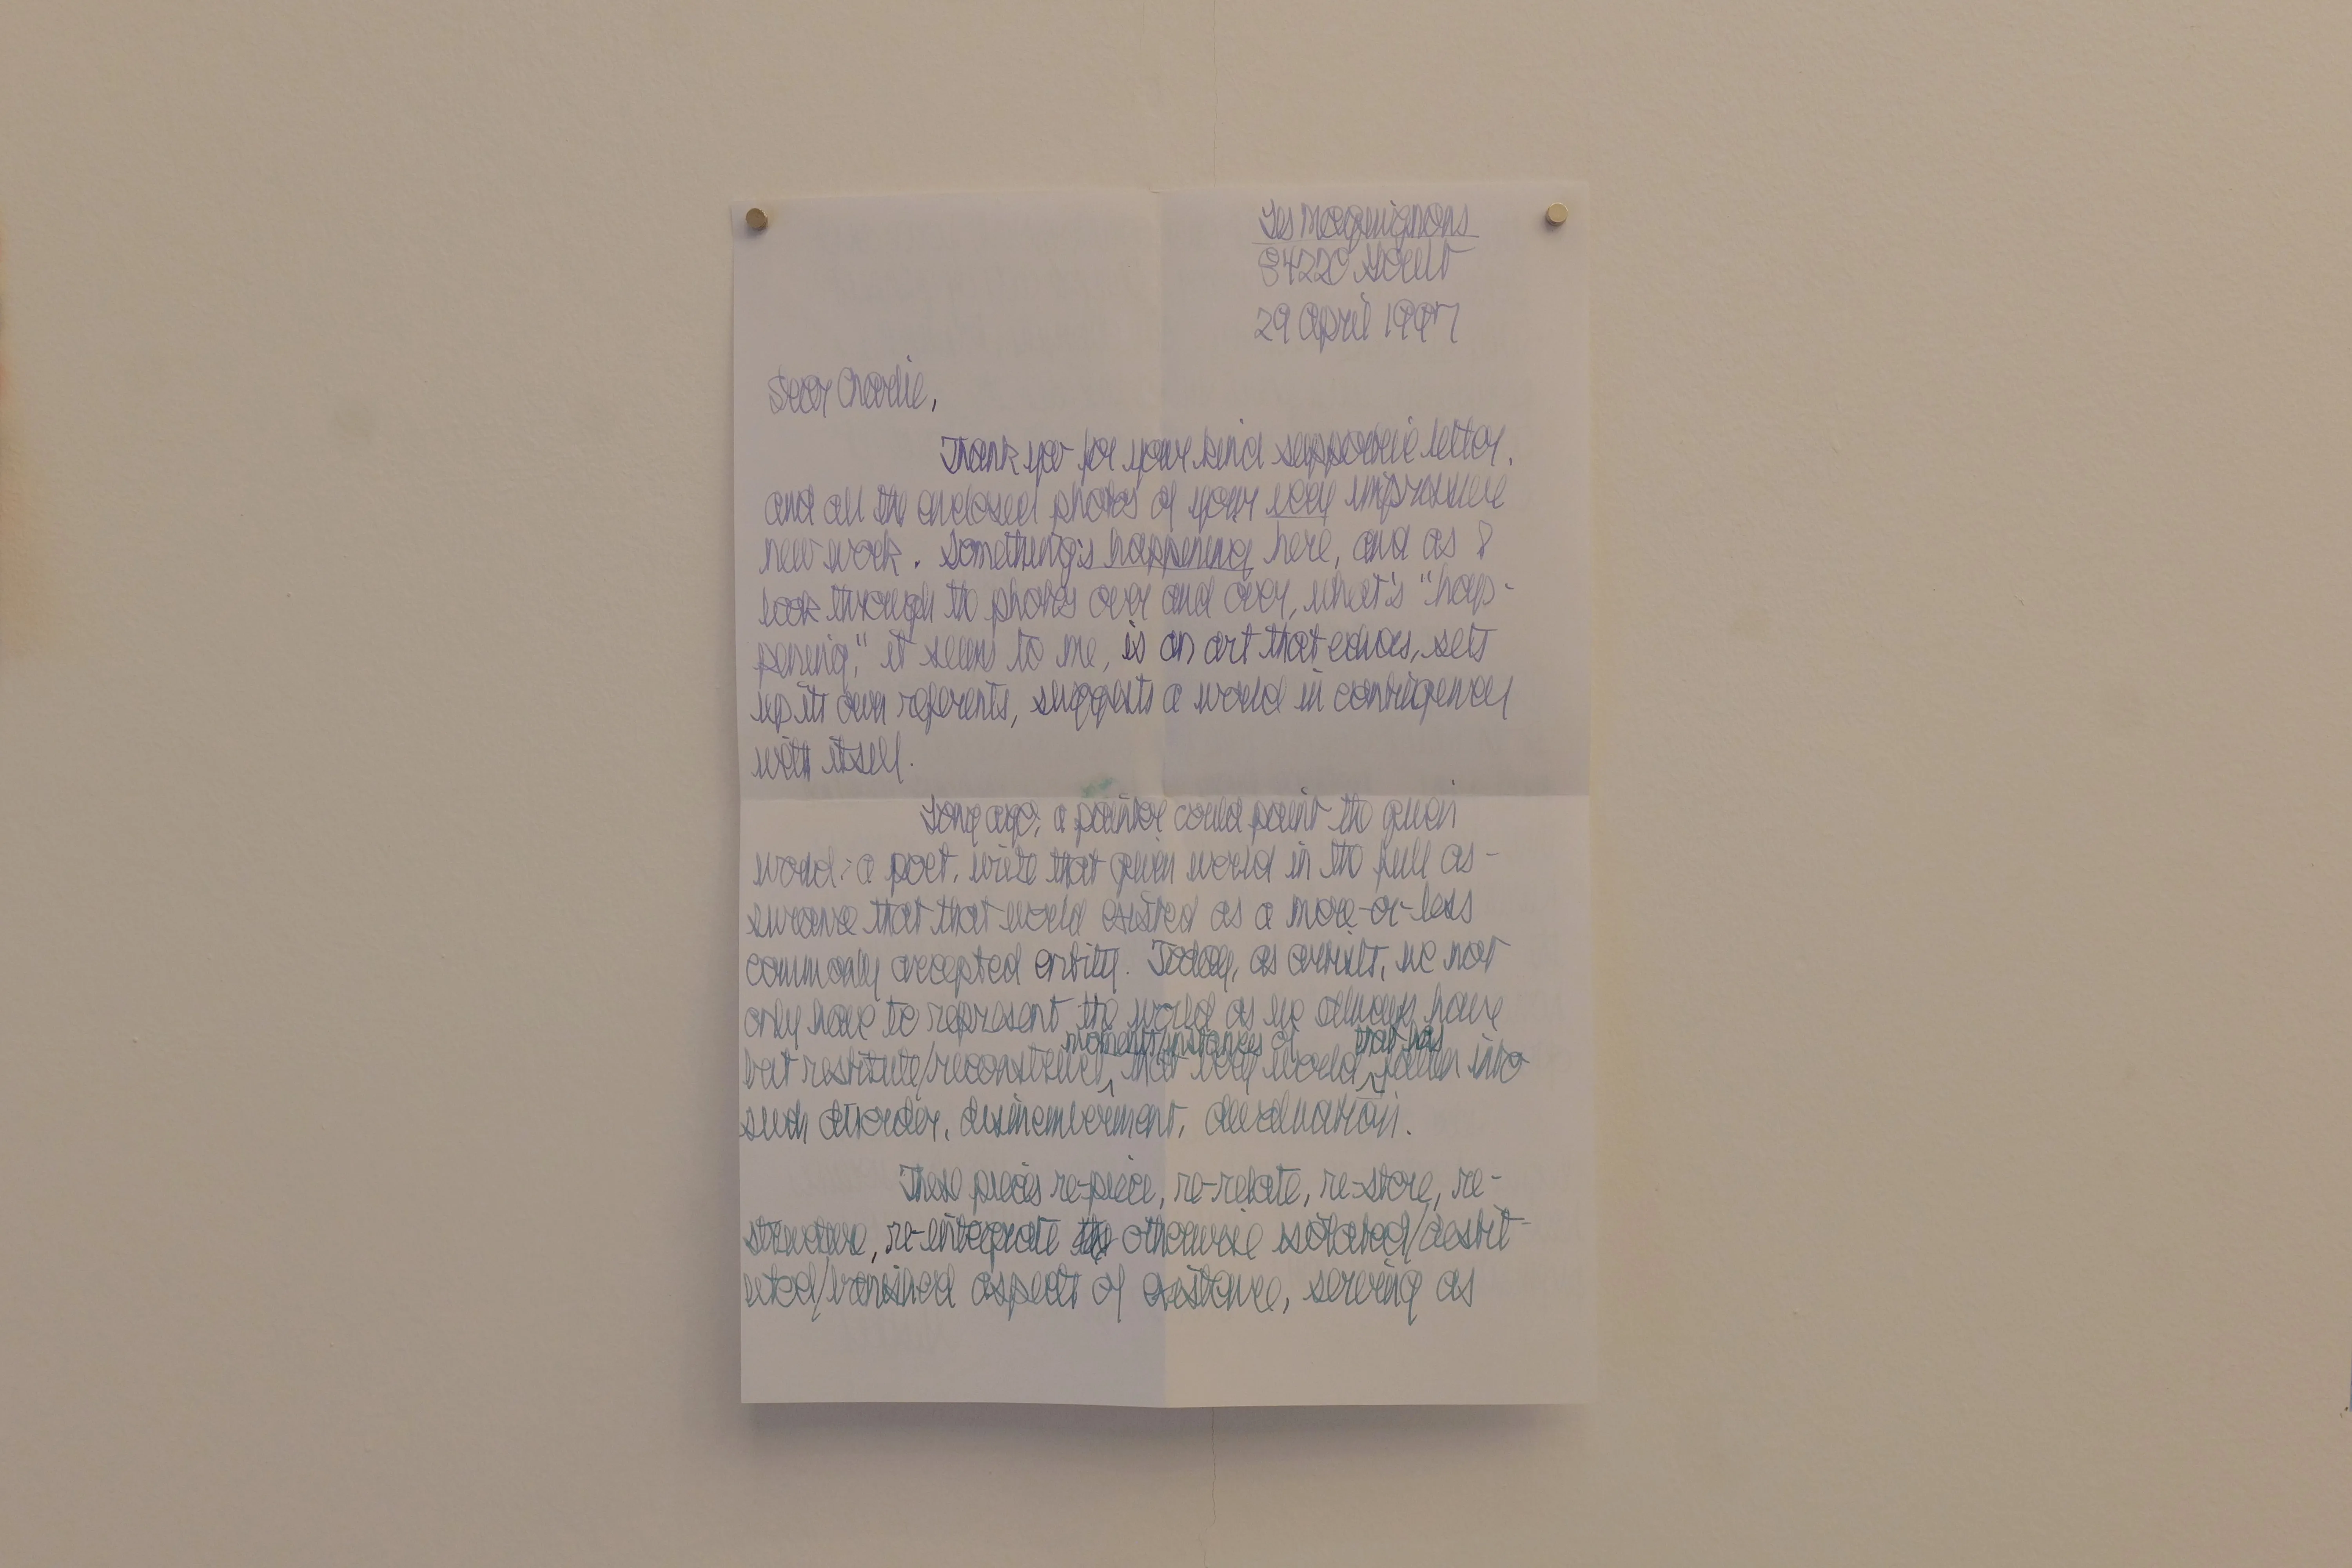 Les Maquignons
84220 Goult
29 April 1997
Dear Charlie,
Thank you for your kind supportive letter,
and all the enclosed photos of your very impressive
new work. Something's happening here, and as I
look through the photos over and over, what's "hap-
pening," it seems to me, is an art that echoes, sets
up its own referents, suggests a world in contingency
with itself.
Long ago, a painter could paint the given
world: a poet, write that given world in the full as-
surance that that world existed as a more-or-less
commonly accepted entity. Today, as artists, we not
only have to represent the world as we always have
moments/instances of that has
but restitute/reconstruct, that very world fallen into
such disorder, dismemberment, devaluation.
These pieces re-piece, re-relate, re-store, re-
structure, re-integrate the otherwise isolated/destit-
uted/banished aspects of existence, serving as